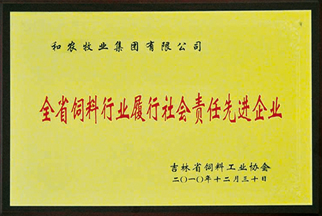 和农牧业集团有限公司
全省饲料行业履行社会责任先进企业
吉林省饲料工业协会
二〇一〇年十二月三十日